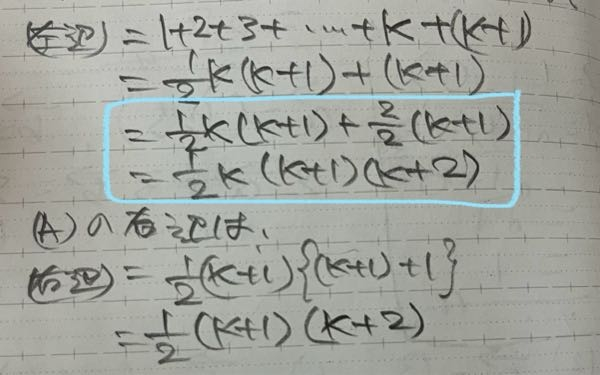 (左辺) = 1+2+3+ … +k+(k+1)
= 1/2 k(k+1) + (k+1)
= 1/2 k(k+1) + 2/2 (k+1)
= 1/2 k (k+1)(k+2)
(A)の右辺は、
(右辺) = 1/2 (k+1){(k+1)+1}
= 1/2 (k+1)(k+2)